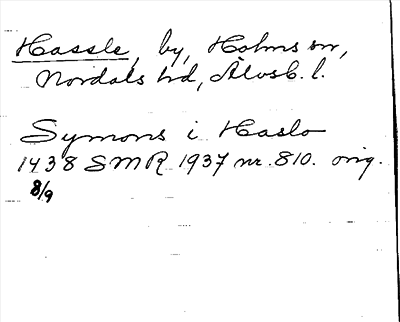 Hassle, by, Holms sn,
Nordals hd, Älvsb. l.
Symons i Haslo
1438 SMR 1937 nr. 810. orig.
8/9